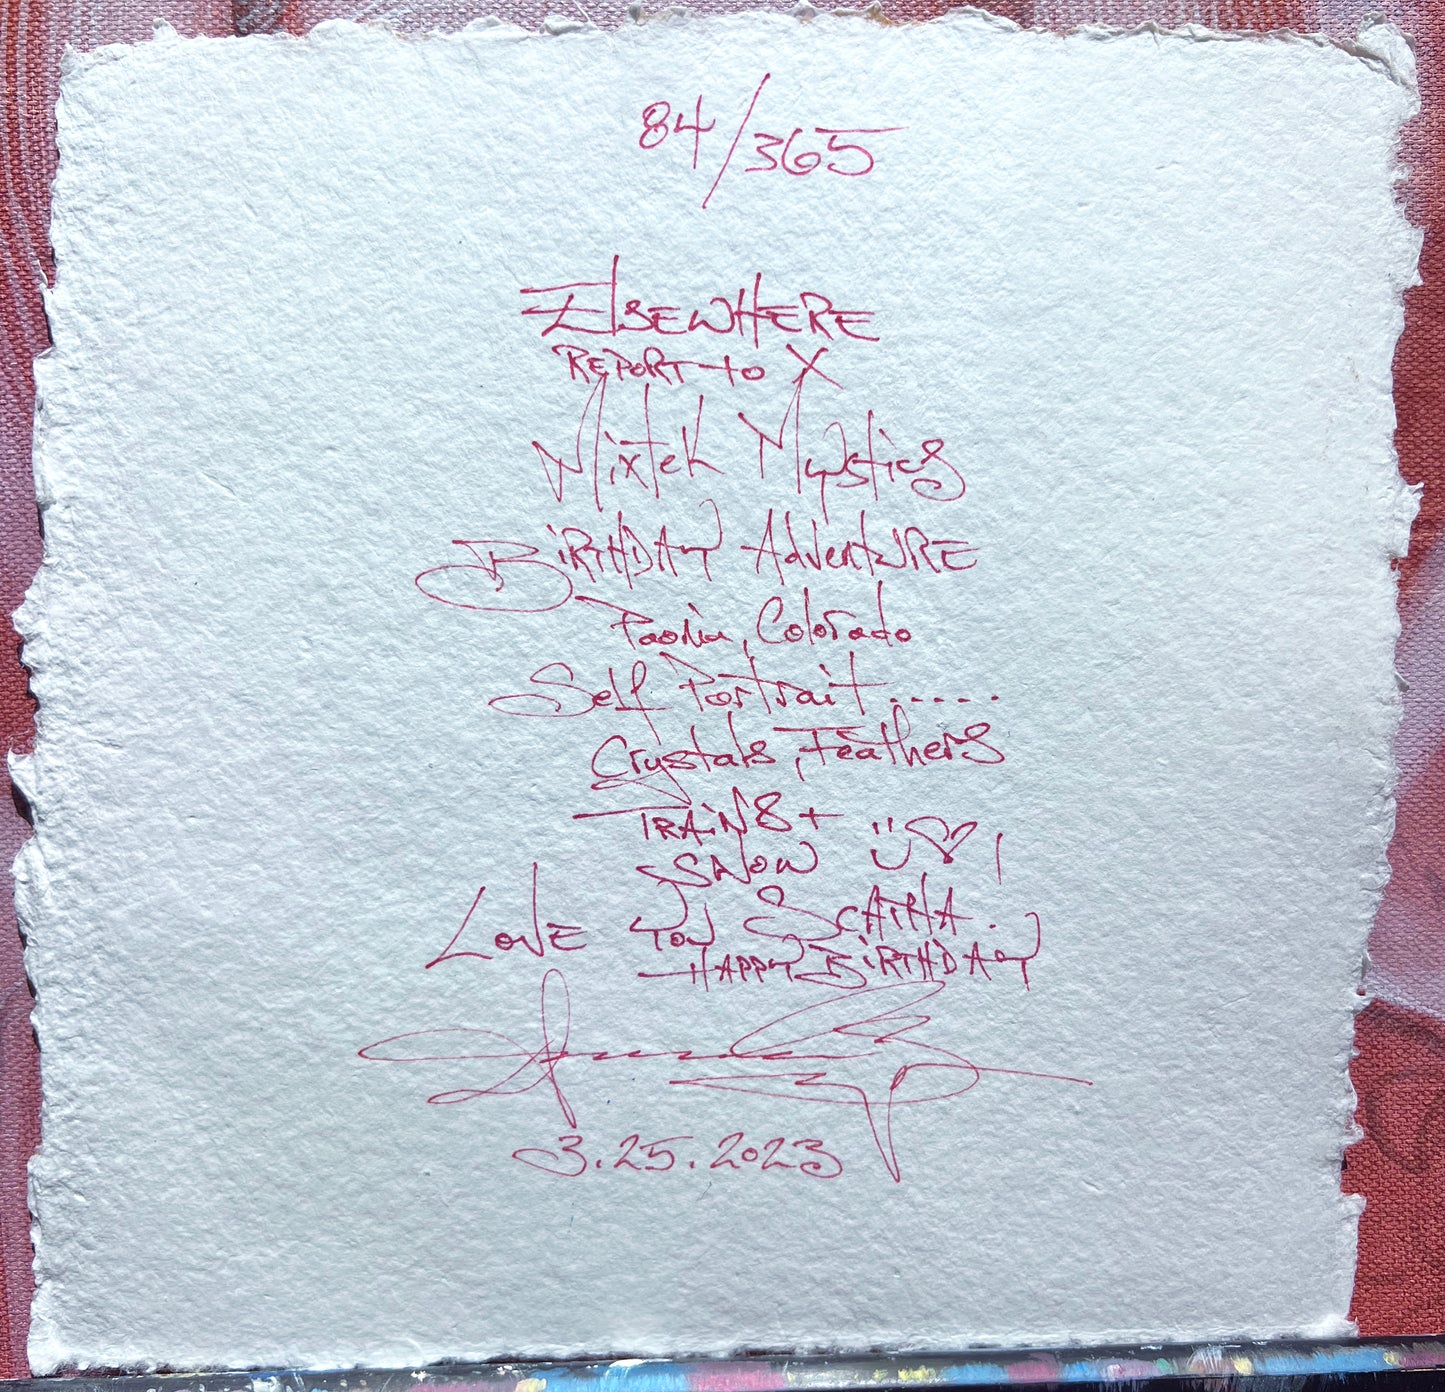 84/365
ElSEWHERE
REPORT to X
Mixtek Mystics
BiRTHDAY AdventURE
Paonia, Colorado
Self Portrait.....
Crystals, Feathers
TRAiNS +
SNOW ü♡!
LOVE YOU SCATHA.
HAPPY BiRTHDAY
3.25.2023